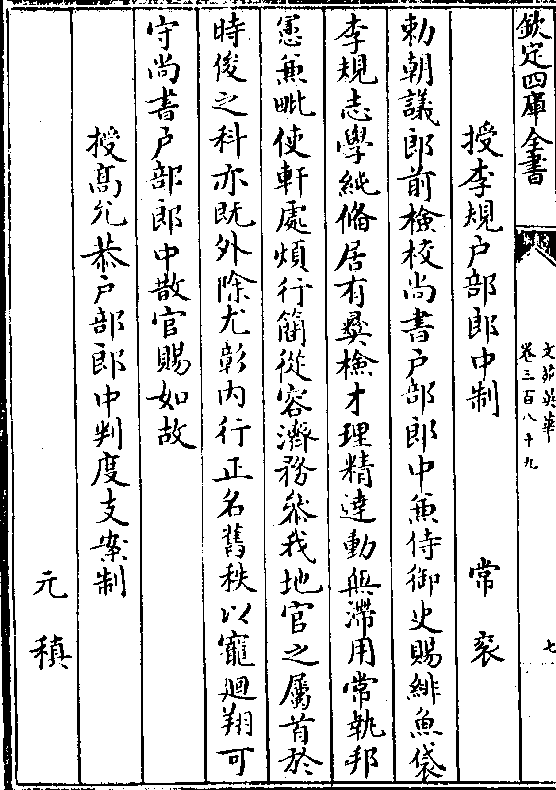 欽定四庫全書
文苑英華
卷三百八十九
七
授李規户部郎中制 常衮
勅朝議郎前檢校尚書户部郎中兼侍御史賜緋魚袋
李規志學純脩居有彜檢才理精達動無滯用常執邦
憲兼毗使軒處煩行簡從容濟務然我地官之屬首於
時俊之科亦既外除尤彰内行正名舊秩以寵廻翔可
守尚書户部郎中散官賜如故
授髙允恭户部郎中判度支案制
元稹